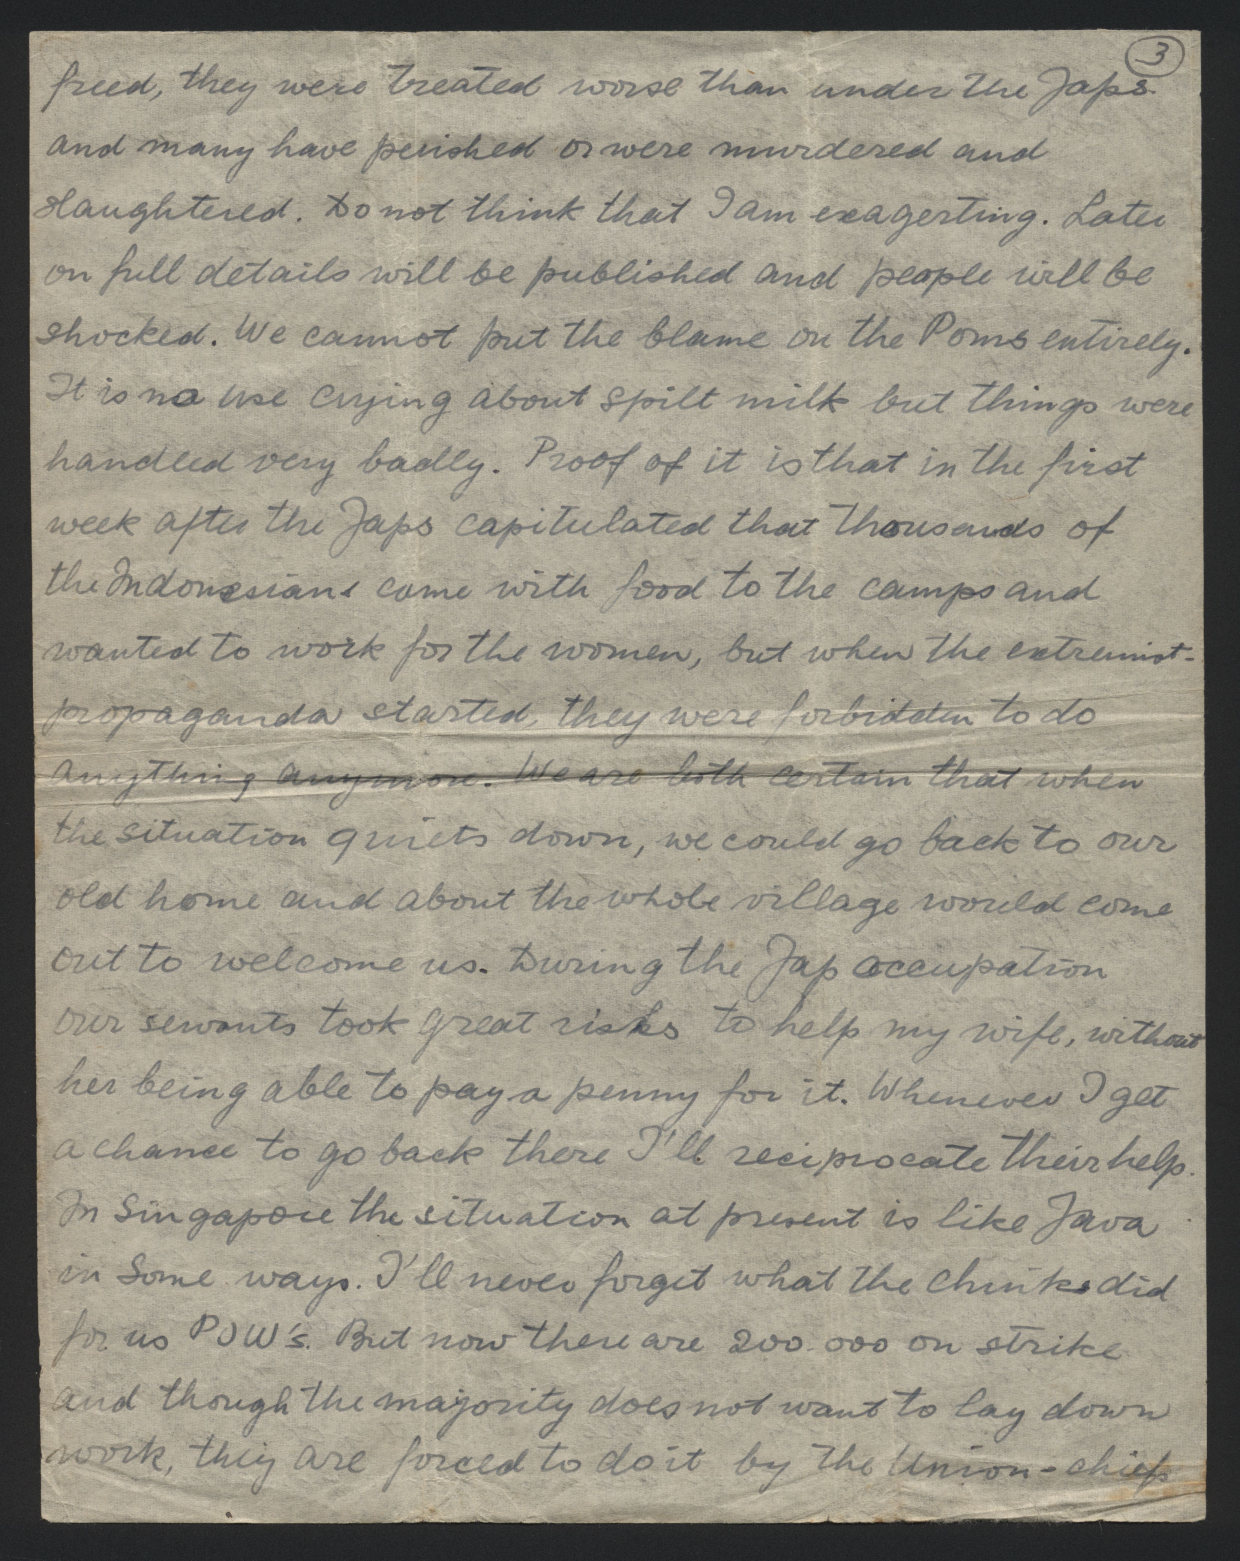 3
freed, they were treated worse than under the Japs.
and many have perished or were murdered and
slaughtered. Do not think that I am exagerting. Later
on full details will be published and people will be
shocked. We cannot put the blame on the Poms entirely.
It is no use crying about spilt milk but things were
handled very badly. Proof of it is that in the first
week after the Japs capitulated that thousands of
the Indonesians came with food to the camps and
wanted to work for the women, but when the extremist-
propaganda started, they were forbidden to do
anything anymore. We are both certain that when
the situation quiets down, we could go back to our
old home and about the whole village would come
out to welcome us. During the Jap occupation
our servants took great risks to help my wife, without
her being able to pay a penny for it. Whenever I get
a chance to go back there I'll reciprocate their help.
In Singapore the situation at present is like Java
in some ways. I'll never forget what the chinks did
for us POW's. But now there are 200.000 on strike
and though the majority does not want to lay down
work, they are forced to do it by the Union-chiefs